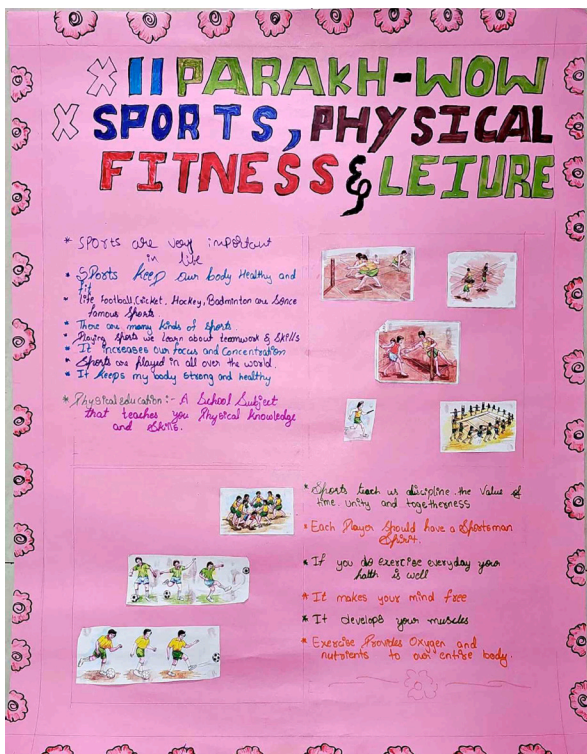 II PARAKH-WOW
SPORTS, PHYSICAL
FITNESS & LEIURE
* SPORTS are very important
in life
* SPorts Keep our body Healthy and
fit
* like Football, Cricket, Hockey, Badminton are Sonce
famous Sports.
* There are many kinds of sports
* Playing Sports we Learn about teamwork & Skills
* It increases our focus and Concentration
* Sports are played in all over the world.
* It Keeps my body strong and healthy
* Physical education :- A School Subject
that teaches you Physical knowledge
and Skills.
* Sports teach us discipline. the Value of
time. unity and togetherness
* Each Player Should have a Sportsman
Spirit.
* If you do exercise everyday your
halth is well
* It makes your mind free
* It develops your muscles
* Exercise Provides Oxygen and
nutrients to our entire body.